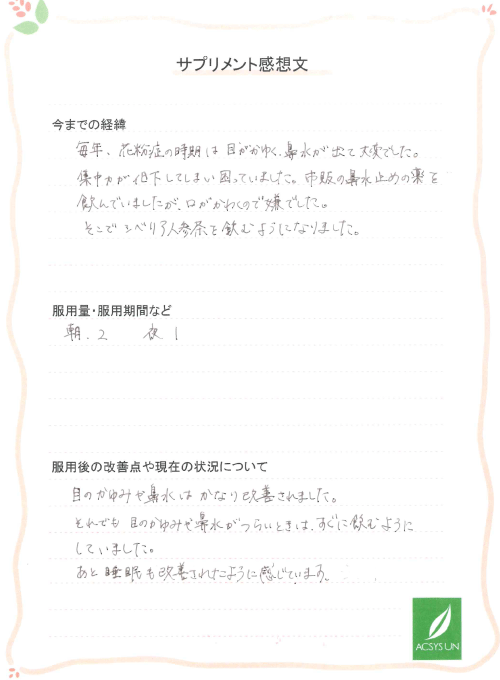 サプリメント感想文
今までの経緯
毎年、花粉症の時期は目がかゆく、鼻水が出て大変でした。
集中力が低下してしまい困っていました。市販の鼻水止めの薬を
飲んでいましたが、口がかわくので嫌でした。
そこでシベリア人参茶を飲むようになりました。
服用量・服用期間など
朝.2 夜1
服用後の改善点や現在の状況について
目のかゆみや鼻水はかなり改善されました。
それでも目のかゆみや鼻水がつらいときは、すぐに飲むように
していました。
あと睡眠も改善されたように感じています。
ACSYSUN